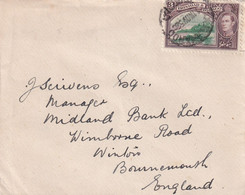 J Scrivens Esq.,
Manager
Midland Bank Ltd.,
Wimborne Road
Winton
Bournemouth
England